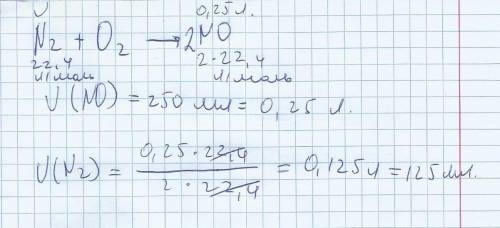 V 0,25 л.
N₂ + O₂ → 2NO
22,4 2·22,4
л/моль л/моль
V(NO) = 250 мл = 0,25 л.
V(N₂) = 0,25·22,4 / 2·22,4 = 0,125 л = 125 мл.